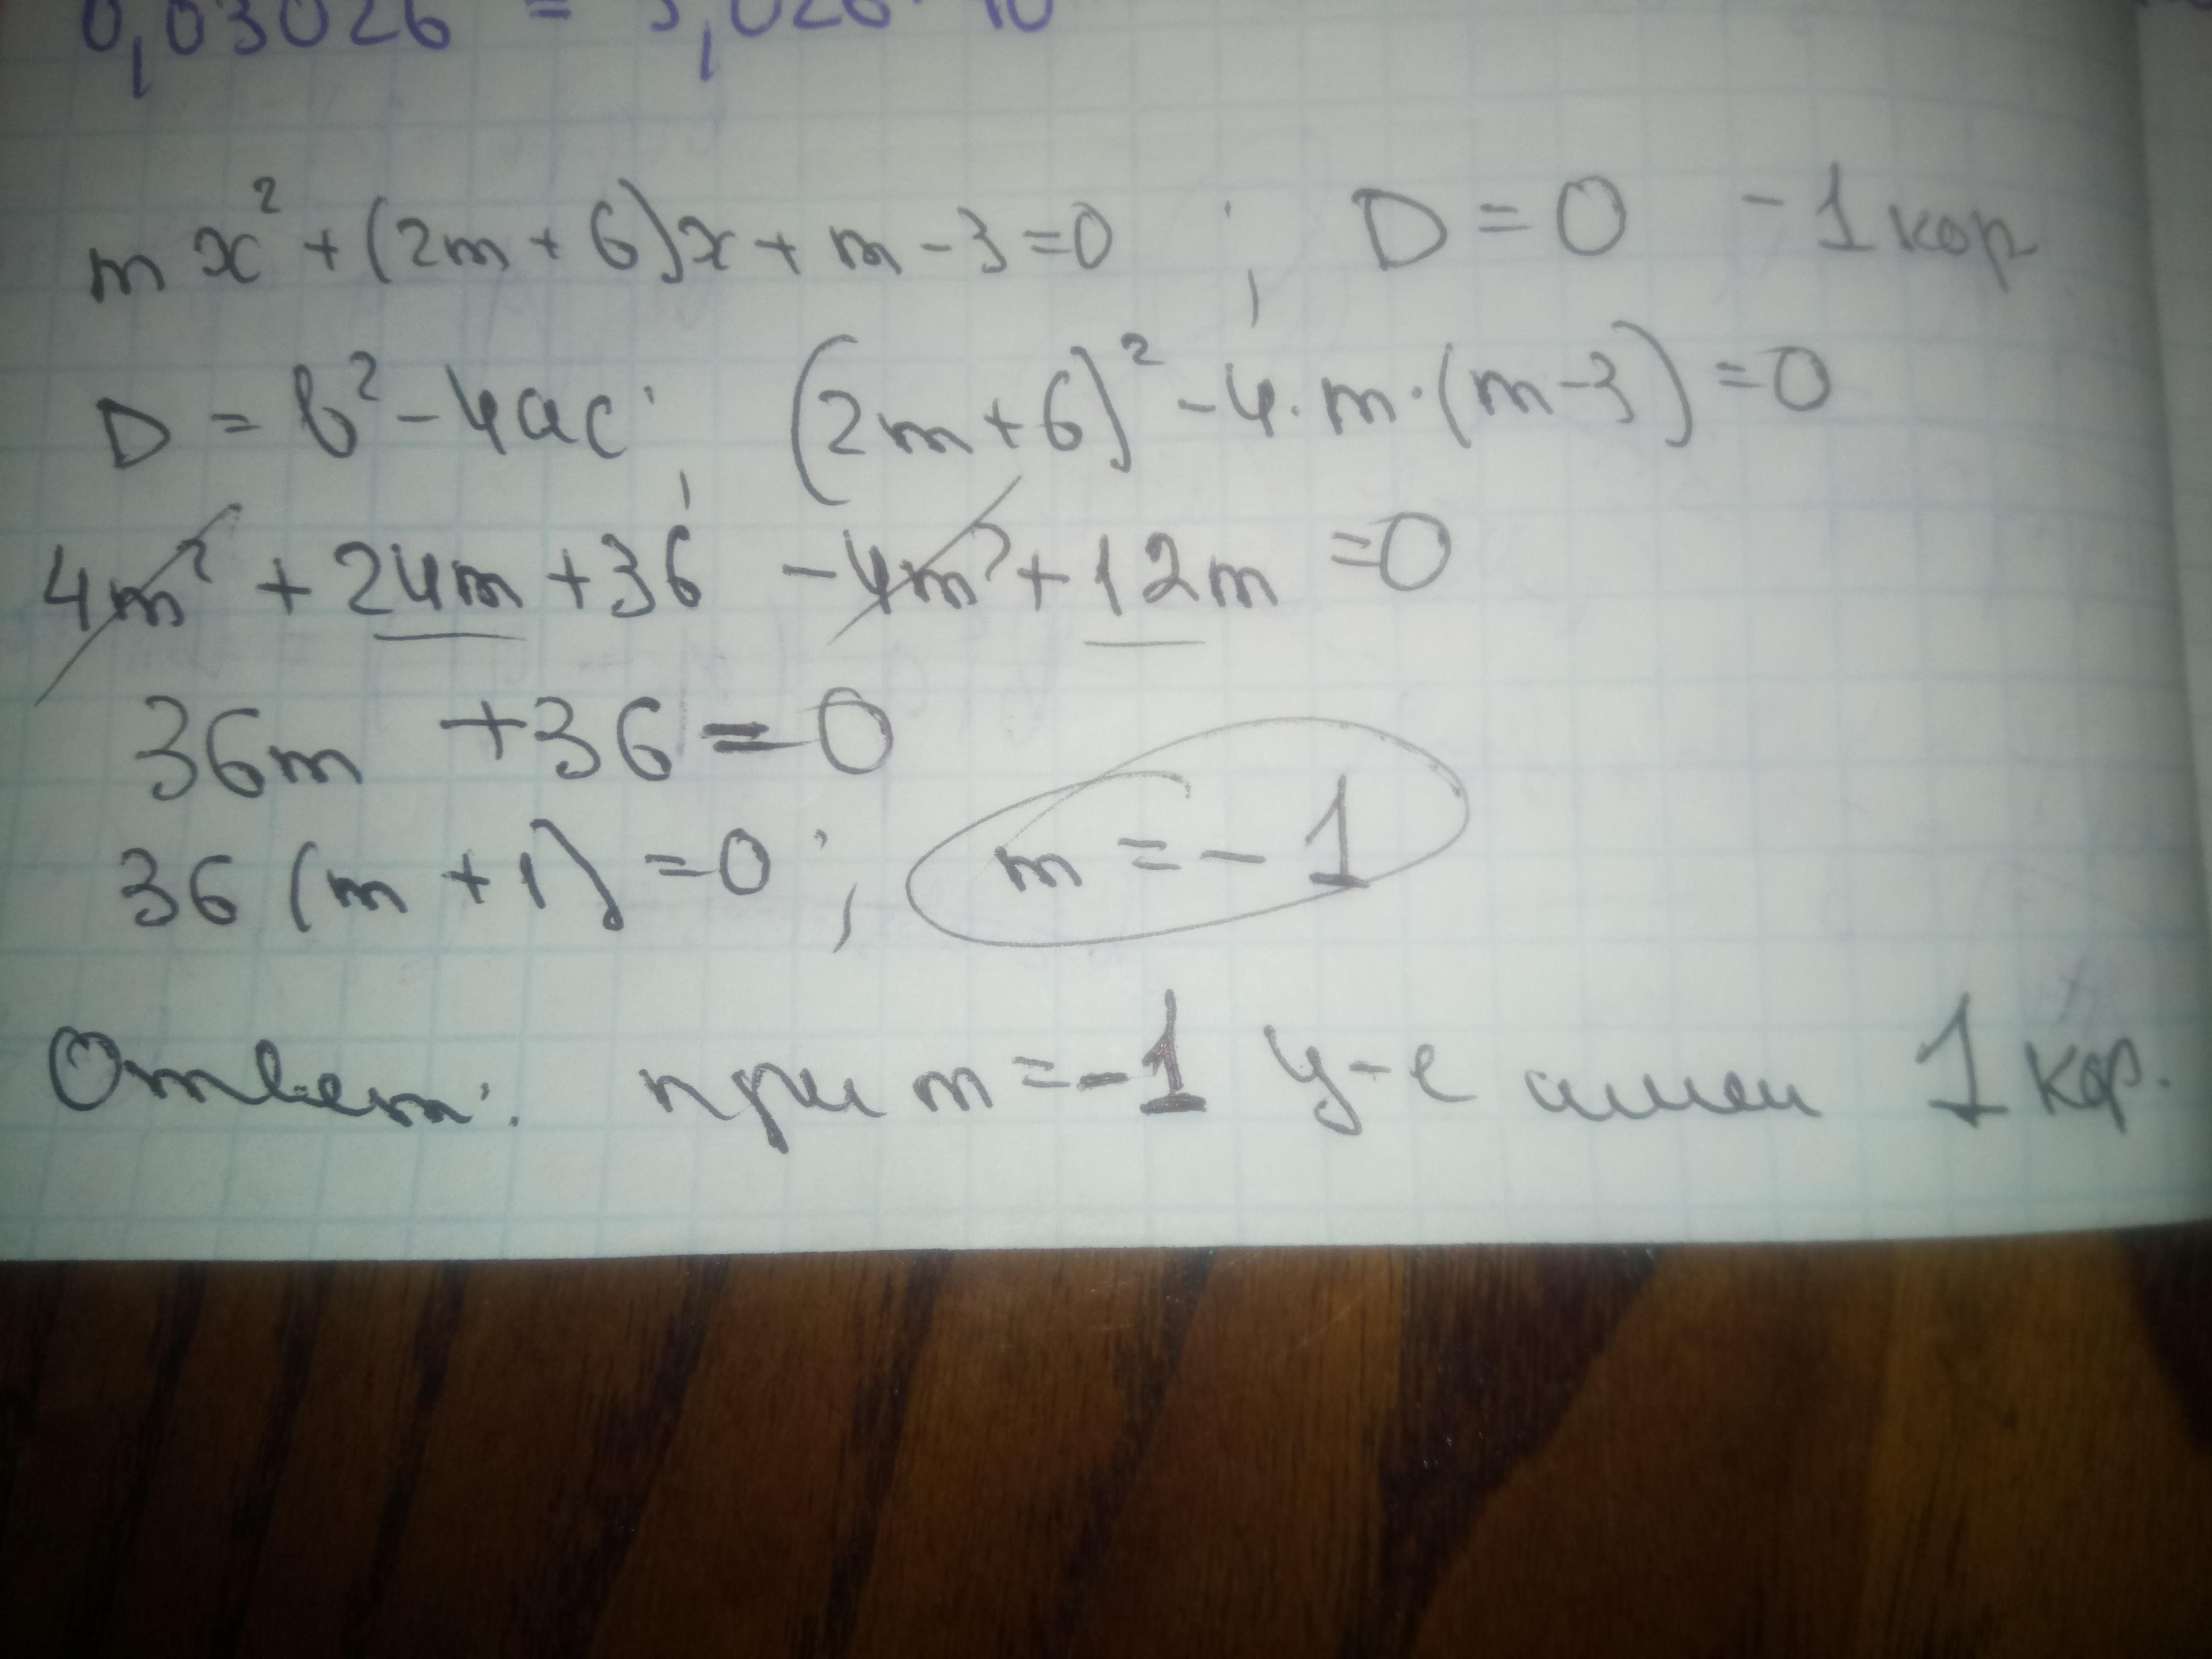 0,03026 = 3,026 · 10
mx² + (2m + 6)x + m - 3 = 0 ; D = 0 - 1 кор
D = b² - 4ac ; (2m + 6)² - 4 · m · (m - 3) = 0
4m² + 24m + 36 - 4m² + 12m = 0
36m + 36 = 0
36 (m + 1) = 0 ; m = - 1
Ответ: при m = -1 у-е имеет 1 кор.